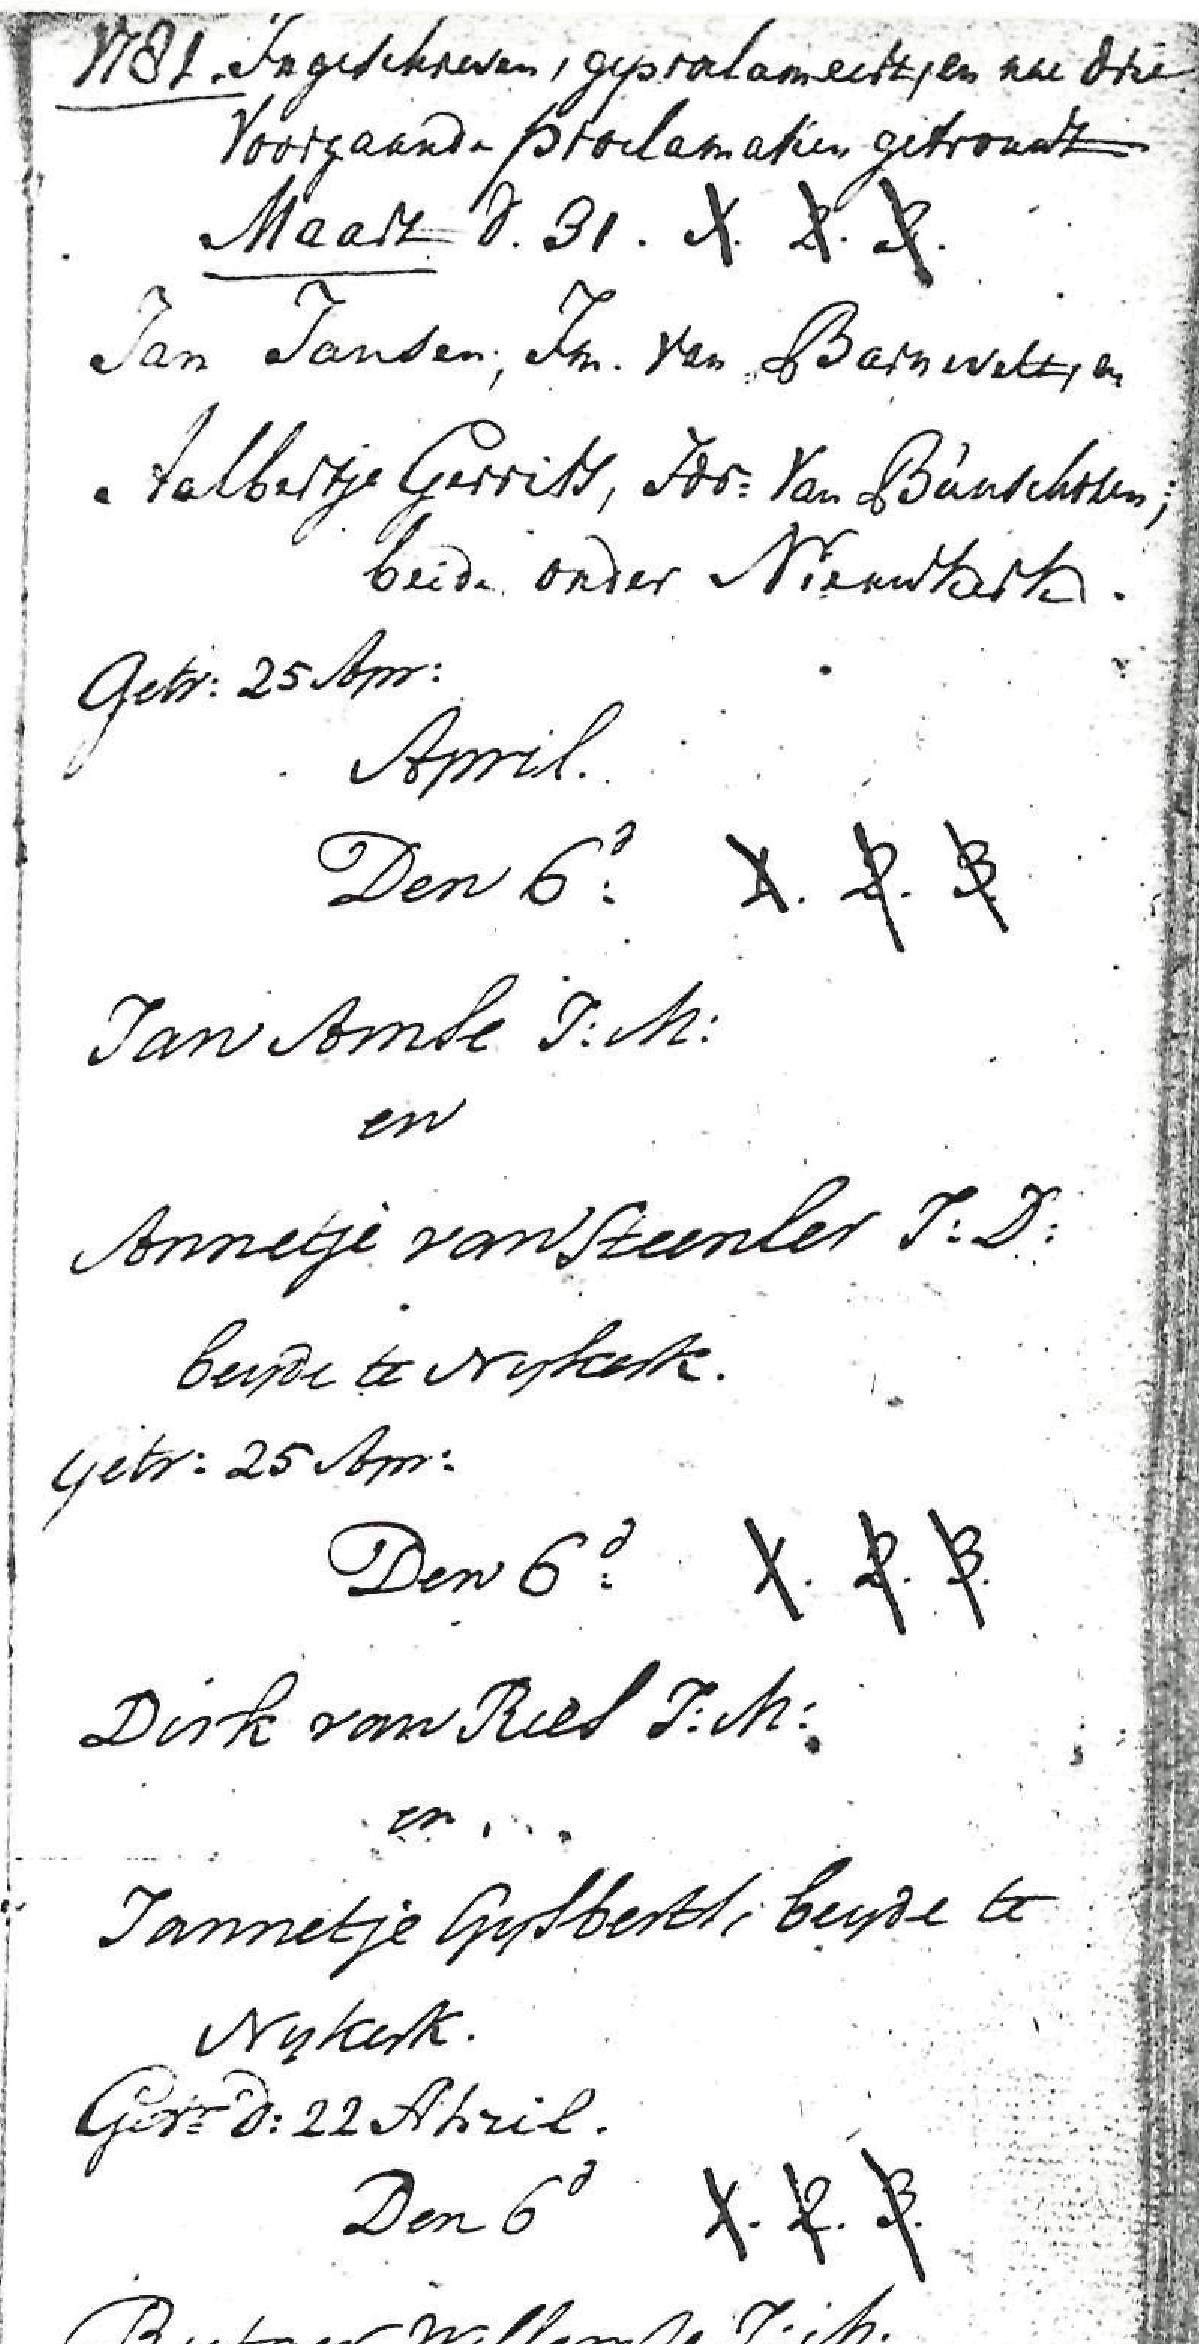 1781. Ingeschreven, geproclameert, en nae drie
Voorgaande proclamatien getrouwt
Maart d. 31. 1. 2. 3.
Jan Jansen, Jm. van Barnevelt, en
Aalbertje Gerrits, Jdr: van Bunschoten;
beide onder Nieuwkerk.
Getr: 25 Apr:
April.
Den 6d: 1. 2. 3.
Jan Amse J: M:
en
Annetje van Steenler J: D:
beyde te Nykerk.
Getr: 25 Apr:
Den 6d: 1. 2. 3.
Dirk van Rees J: M:
en
Jannetje Gysberts, beyde te
Nykerk.
Getr: d: 22 April.
Den 6d 1. 2. 3.
Rutger Willemse J: M: